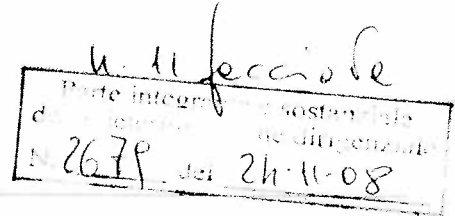 n. 11 facciate
Parte integrante sostanziale
d dirigenziale
N. 2679 del 24-11-08